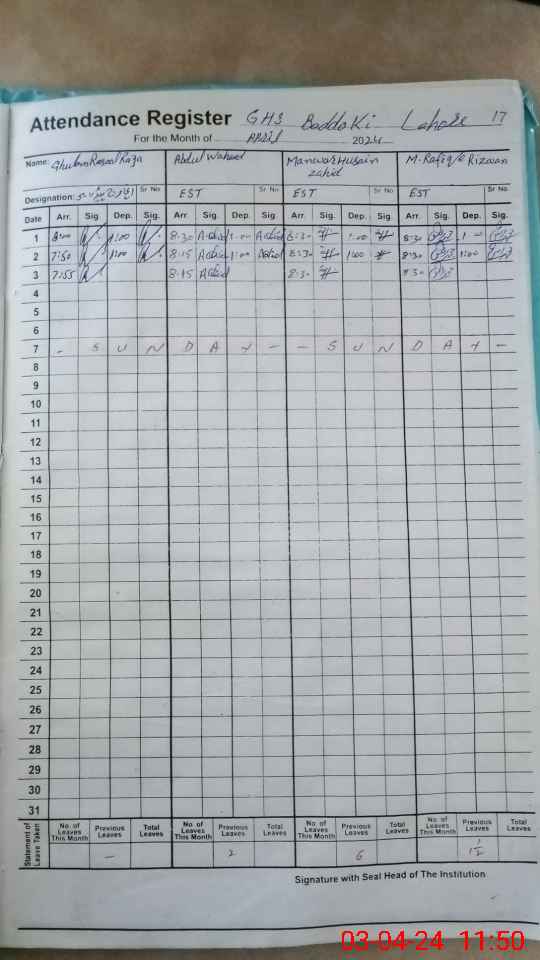 Attendance Register GHS Baddoki Lahore 17
For the Month of April 2024
Name: Ghulam Rasool Raza Abdul Waheed Manwar Husain Zahid M. Rafiq Rizwan
Designation: Sr No. EST Sr No. EST Sr No. EST Sr No.
Date Arr. Sig. Dep. Sig. Arr Sig. Dep. Sig. Arr. Sig. Dep. Sig. Arr. Sig. Dep. Sig.
1 8:00 1:00 8.30 1:00 8:30 1:00 8:30 1:00
2 7:50 1:00 8.15 1:00 8:30 1:00 8:30 1:00
3 7:55 8.15 8:30 8:30
4
5
6
7 - S U N D A Y - - S U N D A Y -
8
9
10
11
12
13
14
15
16
17
18
19
20
21
22
23
24
25
26
27
28
29
30
31
Statement of Leave Taken
No. of Leaves This Month Previous Leaves Total Leaves No. of Leaves This Month Previous Leaves Total Leaves No. of Leaves This Month Previous Leaves Total Leaves No. of Leaves This Month Previous Leaves Total Leaves
- 2 6 1½
Signature with Seal Head of The Institution
03-04-24 11:50